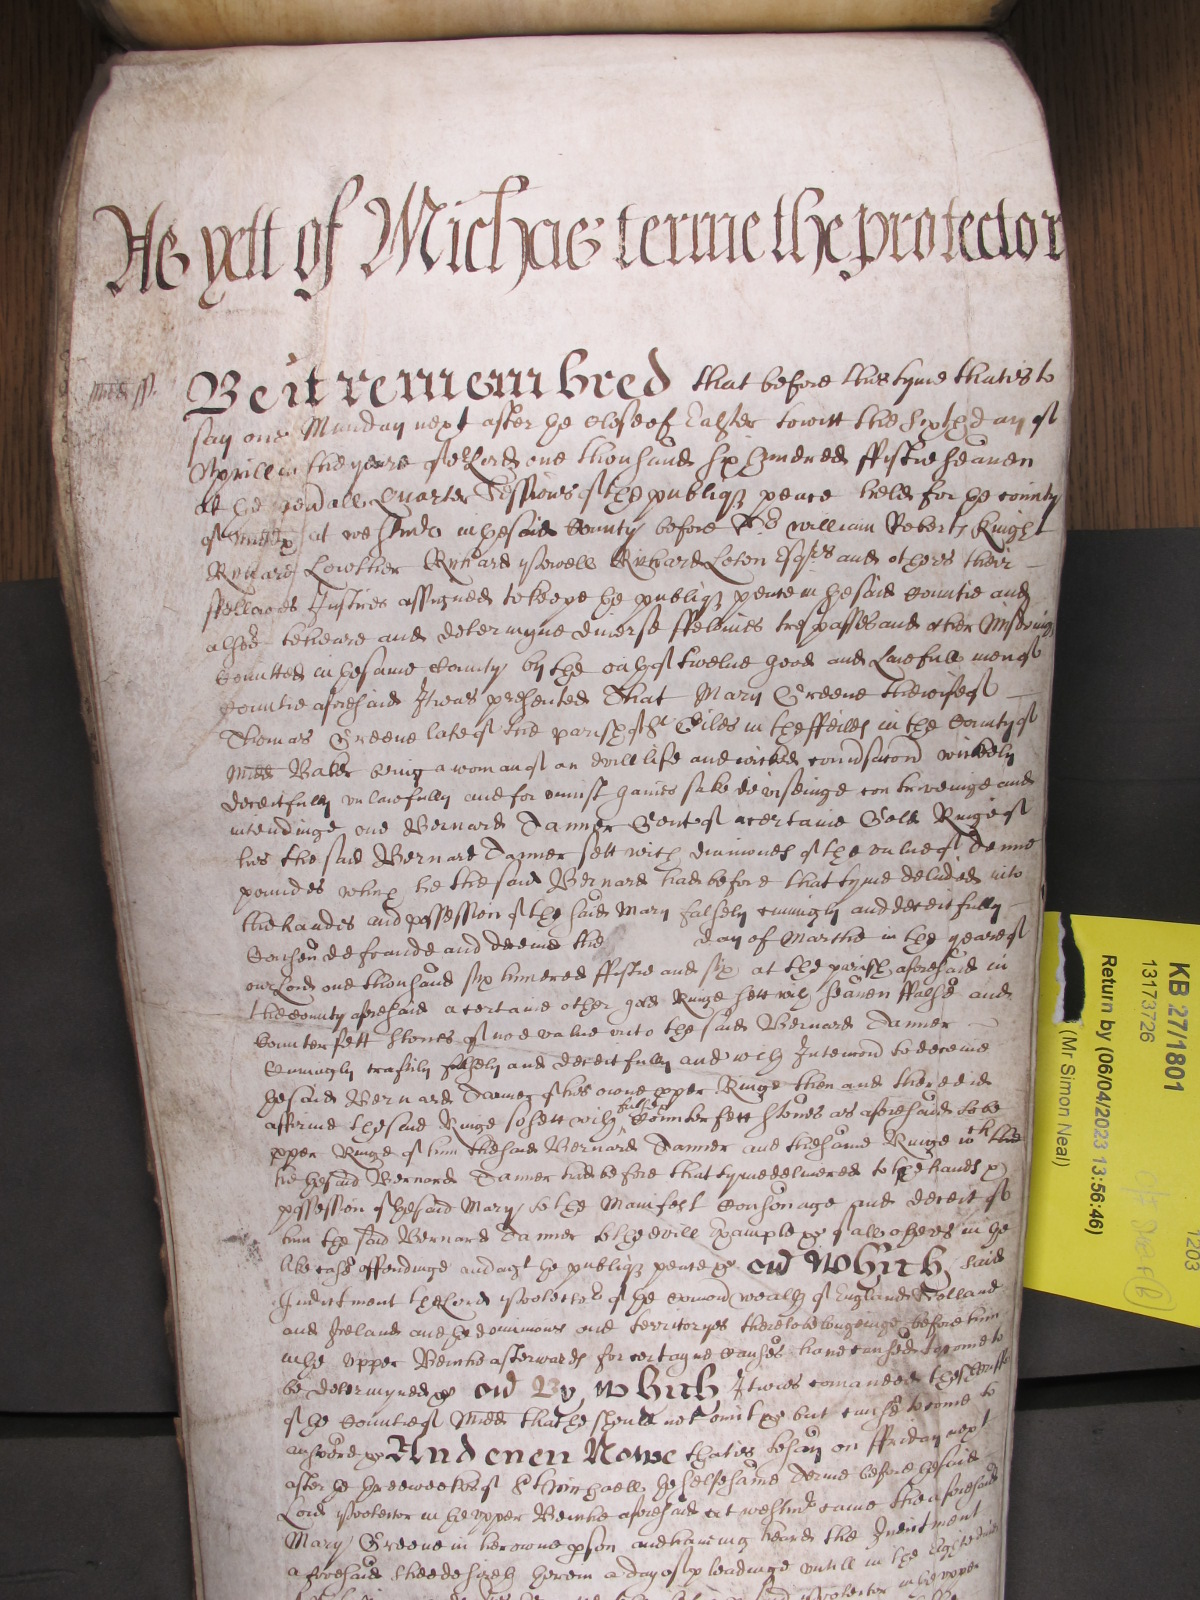 As yett of Michaes terme the protector
Midd ss.
Be it remembred that before this tyme that is to
say one Munday next after the close of Easter to witt the sixth day of
Aprill in the yeare of or Lord one thousand six hundred fiftie seaven
At the generall Quarter Sessions of the publiq peace held for the county
of Midd at Westmr in the said County before Sr William Roberts Knight
Richard Lowther Richard Powell Richard Leton Esqrs and others their
ffellowes Justices assigned to keepe the publiq peace in the said Countie and
alsoe to heare and determyne diverse ffelonies trespasses and other
Comitted in the same County by the oath of twelve good and lawfull men of
Countie aforesaid It was presented That Mary Greene the wife of
Thomas Greene late of the parish of St Giles in the ffeilds in the County of
Midd being a woman of an evill life and wicked wickedly
deceitfully unlawfully and for unjust gaines sake deviseinge contriveinge and
intendinge one Bernard Tanner Gent of a certaine Gold Ringe of
his the said Bernard Tanner sett with diamonds of the value of Tenne
poundes which he the said Bernard had before that tyme delivered into
the handes and possession of the said Mary falsely and deceitfully
Cousen defraude and deceive the day of Marche in the yeare of
our Lord one thousand six hundred fiftie and six at the parish aforesaid in
the county aforesaid a certaine other gold Ringe sett with seaven ffalse and
Counterfett stones of noe value unto the said Bernard Tanner
craftily falsely and deceitfully and with Intencon to deceive
the said Bernard Tanner of his owne pper Ringe then and there did
affirme the said Ringe so sett with false Counterfett stones as aforesaid to be
pper Ringe of him the said Bernard Tanner and the same Ringe wch the
he the said Bernard Tanner had before that tyme delivered to the hands &
possession of the said Mary to the Manifest Cousonage and deceit of
him the said Bernard Tanner to the evill Example of all others in the
like case offendinge and agt the publiq peace &c Which said
Indictment the Lord Protector of the comonwealth of England Scotland
and Ireland and the dominions and territoryes thereto belonginge before him
in the upper Benche afterwards for certayne causes have caused to come to
be determyned &c By which It was comanded the Sheriffe
of the Countie of Midd that he should not omit &c but cause to come to
answere &c And even Nowe that is to say on ffriday next
after the three weekes of St Michaell the selfe same Terme before the said
Lord Protector in the upper Benche aforesaid at Westmr came the aforesaid
Mary Greene in her owne pson and haveing heard the Indictment
aforesaid shee desireth herein a day of pleadinge untill in the
KB 27/1801
13173726
Return by (06/04/2023 13:56:46)
(Mr Simon Neal)
1203